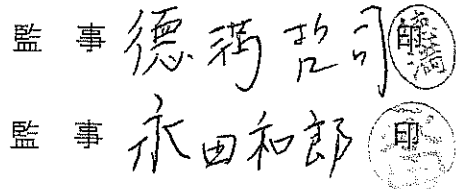 監事 徳満哲司 印
監事 永田和郎 印